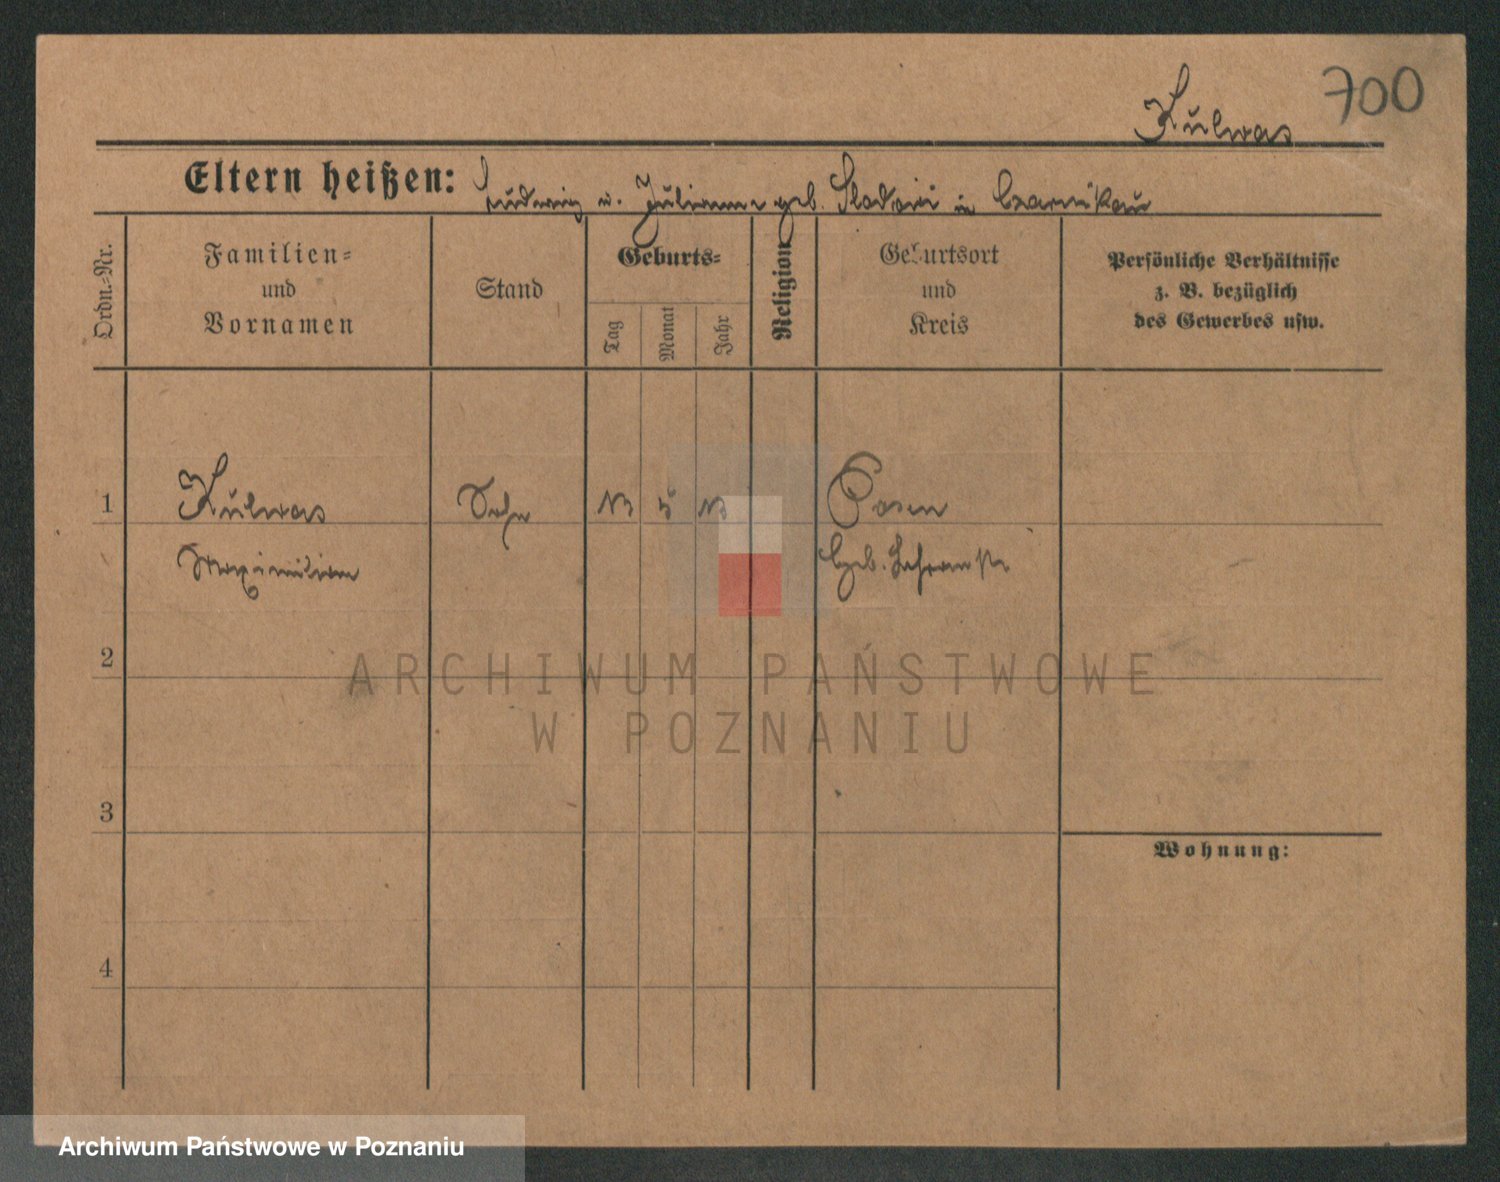 Kulwas 700
Eltern heißen: Ludwig u. Julianna geb. in Czarnikau
Ordn.-Nr.
Familien-
und
Vornamen
Stand
Geburts-
Tag
Monat
Jahr
Religion
Geburtsort
und
Kreis
Persönliche Verhältnisse
z. B. bezüglich
des Gewerbes usw.
1 Kulwas Sohn 13 5 13 Posen
Maximilian
2
ARCHIWUM PAŃSTWOWE
W POZNANIU
3
Wohnung:
4
Archiwum Państwowe w Poznaniu